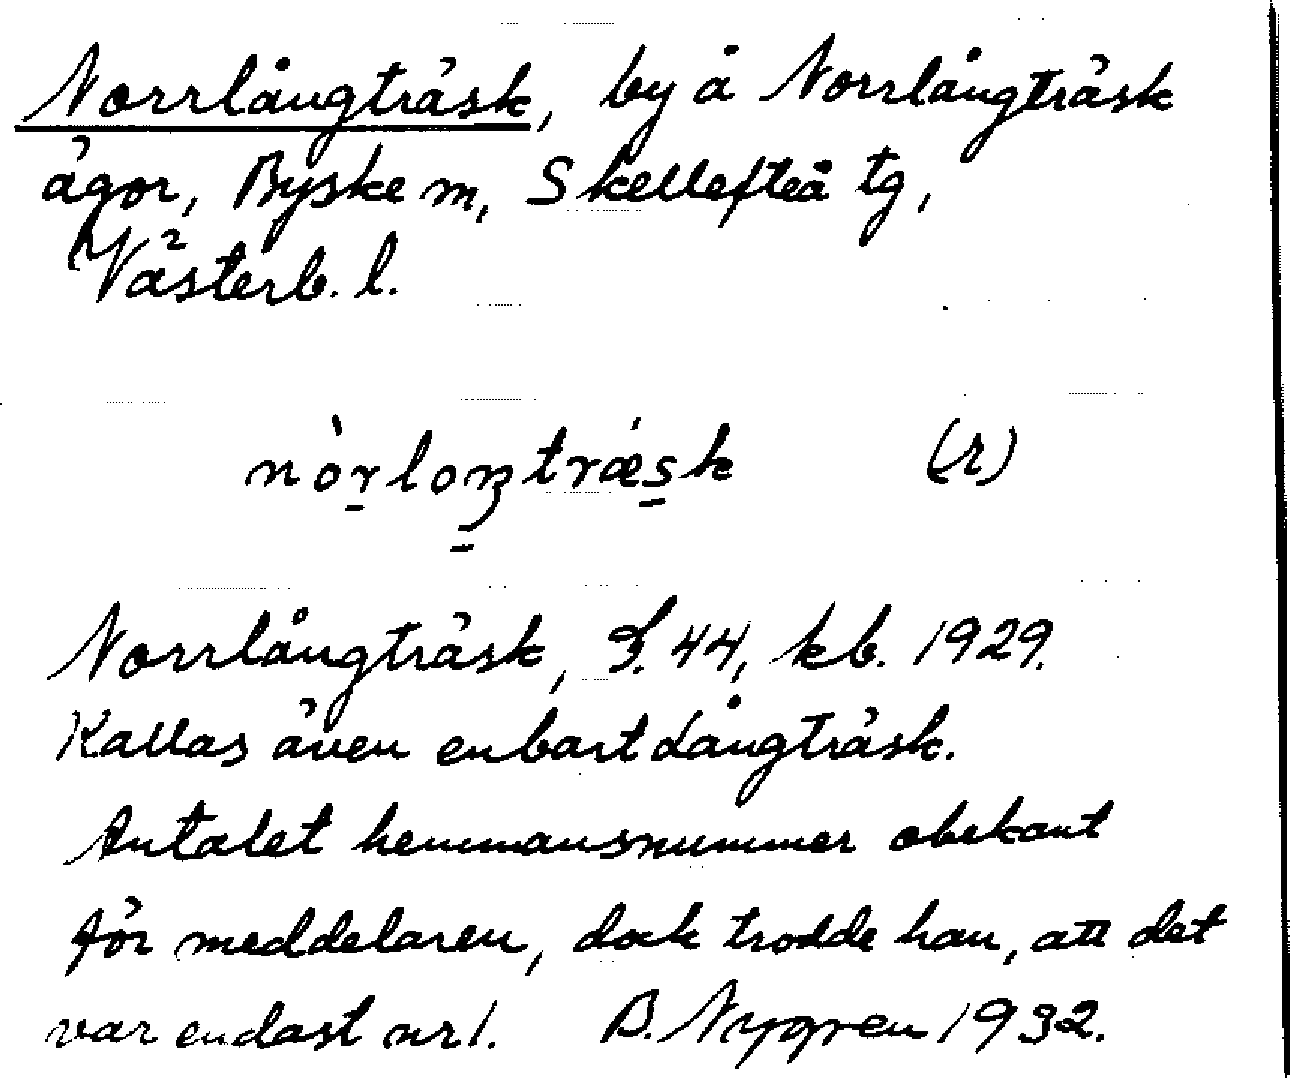 Norrlångträsk, by å Norrlångträsk
ägor, Byske m, Skellefteå tg,
Västerb. l.
nòrloŋtrǽsk (r)
Norrlångträsk, S. 44, kb. 1929.
Kallas även enbart Långträsk.
Antalet hemmansnummer obekant
för meddelaren, dock trodde han, att det
var endast nr 1. B. Nygren 1932.